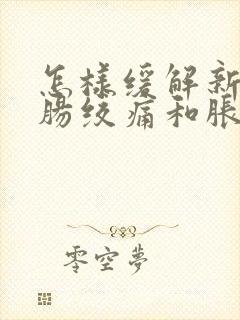 怎樣緩解新
腸絞痛和脹
零空夢